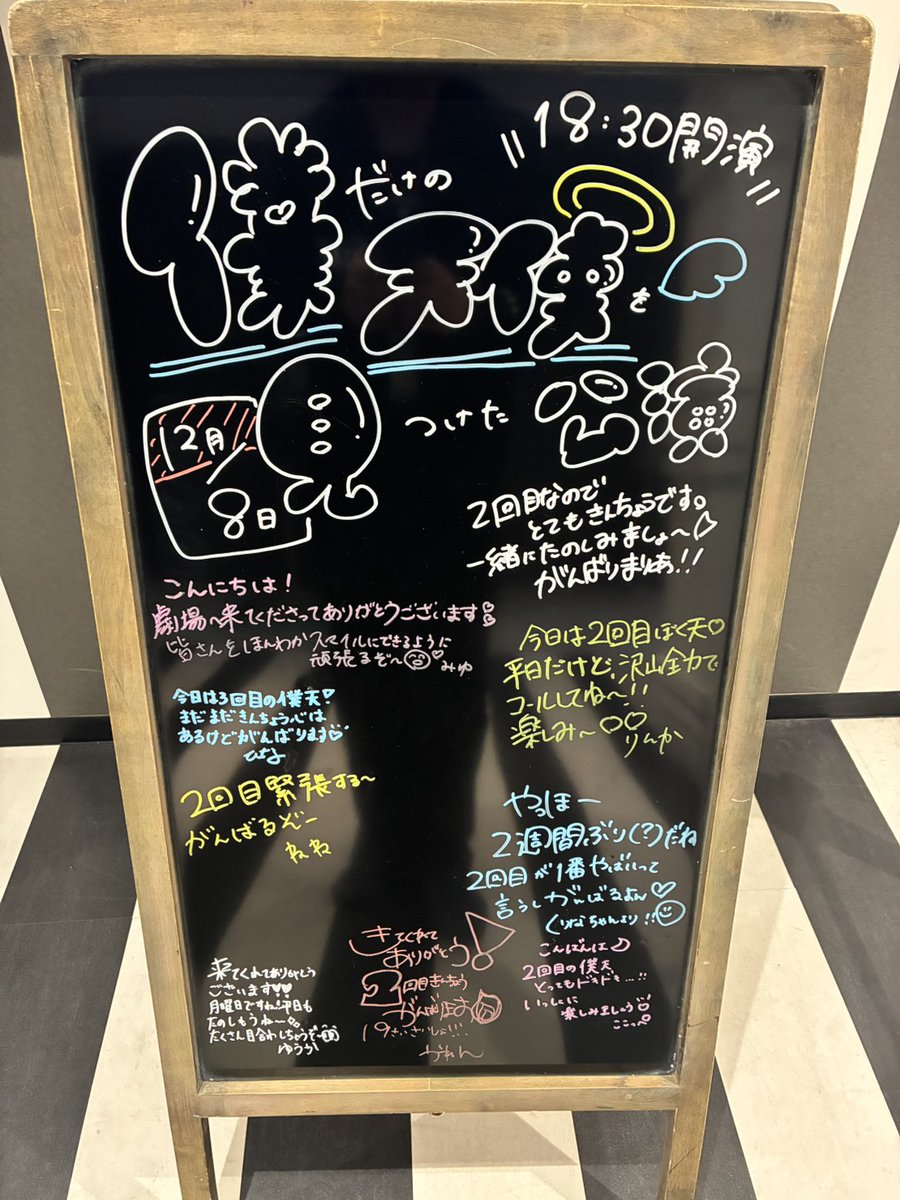 18:30開演
僕だけの
天使を
つけた
公演
12月
8日
2回目なので
とてもきんちょうです。
一緒にたのしみましょ〜
がんばりまりあ!!
こんにちは!
劇場へ来てくださってありがとうございます
皆さんをほんわかスマイルにできるように
頑張るぞ〜 みゆ
今日は2回目ぼく天♡
平日だけど、沢山全力で
コールしてね〜!!
楽しみ〜♡♡
りんか
今日は3回目の僕天!
まだまだきんちょう心は
あるけどがんばります♡
ひなよ
2回目緊張する〜
がんばるぞー
ねね
やっほー
2週間ぶり(?)だね
2回目が1番やばいって
言うしがんばるよん♡
くりなちゃんより!!
来てくれてありがとう
ございます!!
月曜日ですね、平日も
たのしもうね〜
たくさん目合わしちゃうぞ
ゆうか
きてくれて
ありがとう!
2回目きんちょう
がんばります
19さいさいしょ!!!
かれん
こんばんは♪
2回目の僕天
とってもドキドキ...!!
いっしょに
楽しみましょう
ここっぺ